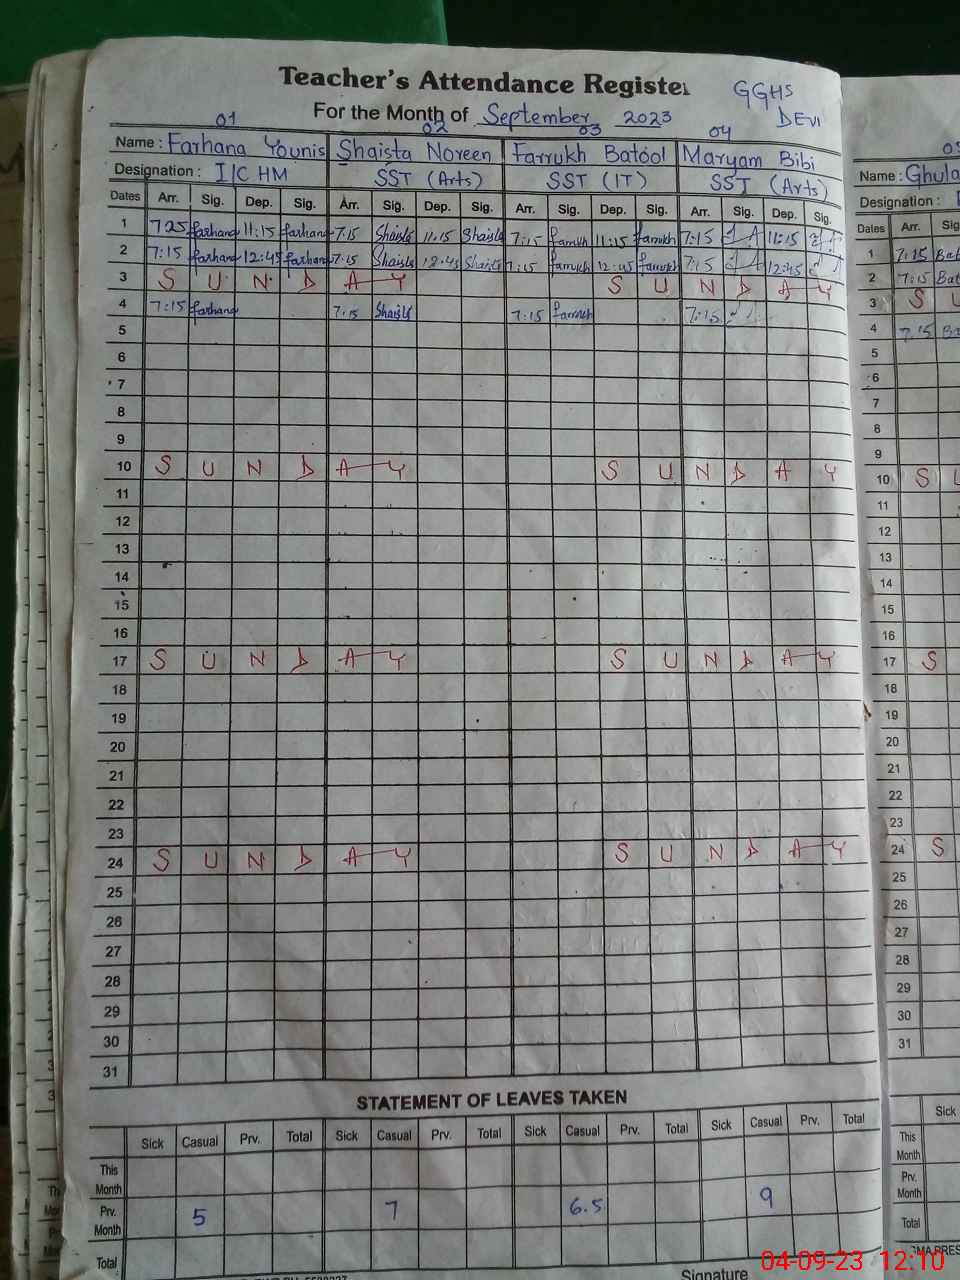 Teacher's Attendance Register
GGHS
DEVI
For the Month of September 2023
01 02 03 04
Name : Farhana Younis Shaista Noreen Farrukh Batool Maryam Bibi
Designation : I/C HM SST (Arts) SST (IT) SST (Arts)
Dates Arr. Sig. Dep. Sig. Arr. Sig. Dep. Sig. Arr. Sig. Dep. Sig. Arr. Sig. Dep. Sig.
1 7:25 farhana 11:15 farhana 7:15 Shaista 11:15 Shaista 7:15 farrukh 11:15 farrukh 7:15 11:15
2 7:15 farhana 12:45 farhana 7:15 Shaista 12:45 Shaista 7:15 farrukh 12:45 farrukh 7:15 12:45
3 S U N D A Y S U N D A Y
4 7:15 farhana 7:15 Shaista 7:15 farrukh 7:15
5
6
7
8
9
10 S U N D A Y S U N D A Y
11
12
13
14
15
16
17 S U N D A Y S U N D A Y
18
19
20
21
22
23
24 S U N D A Y S U N D A Y
25
26
27
28
29
30
31
STATEMENT OF LEAVES TAKEN
Sick Casual Prv. Total Sick Casual Prv. Total Sick Casual Prv. Total Sick Casual Prv. Total
This Month
Prv. Month 5 7 6.5 9
Total
Signature
Name : Ghula
Designation :
Dates Arr.
1 7:15
2 7:15
3 S U
4 7:15
5
6
7
8
9
10 S
11
12
13
14
15
16
17 S
18
19
20
21
22
23
24 S
25
26
27
28
29
30
31
Sick
This Month
Prv. Month
Total
04-09-23 12:10